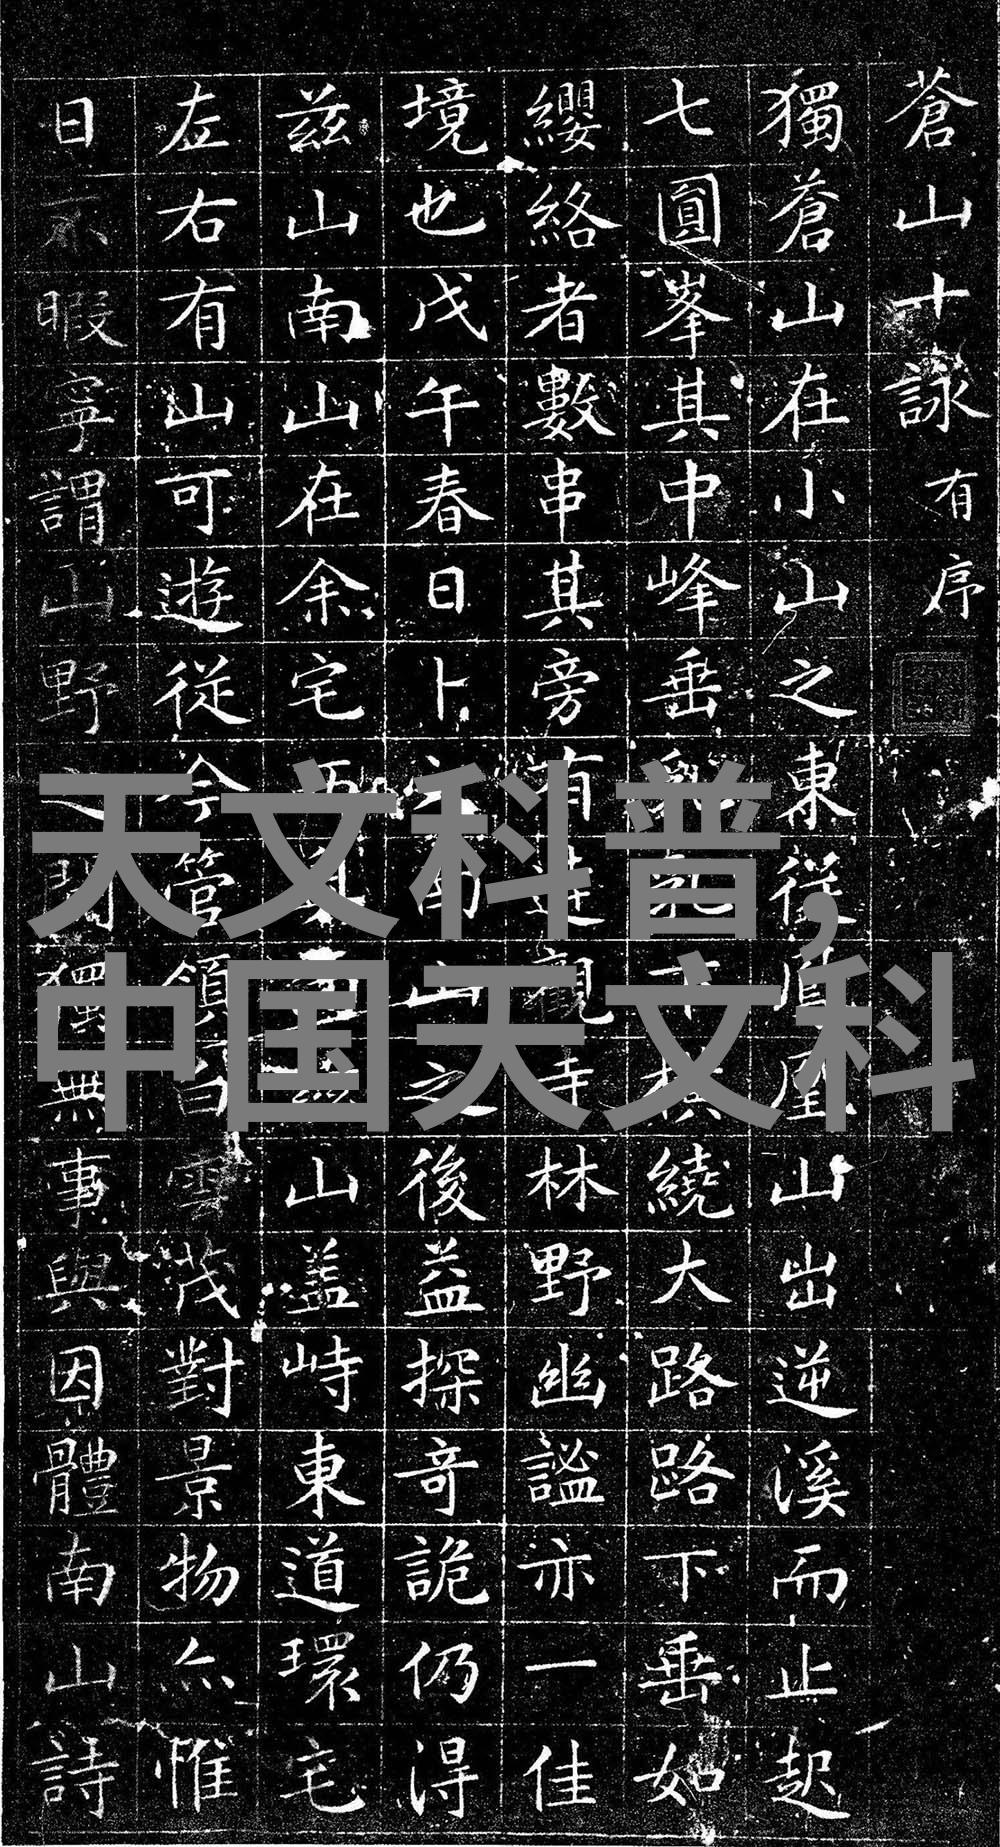 蒼山十詠 有序
獨蒼山在小山之東從鳳凰山出逆溪而止起
七圓峯其中峰垂乳下横繞大路路下垂如
纓絡者數串其旁有進觀寺林野幽謐亦一佳
境也戊午春日卜南山之後益探奇詭仍得
茲山南山在余宅西山蓋峙東道環宅
左右有山可遊從今管領白雲茂對景物亦惟
日不暇寧謂山野之間獨無事與因體南山詩
天文科普,
中国天文科